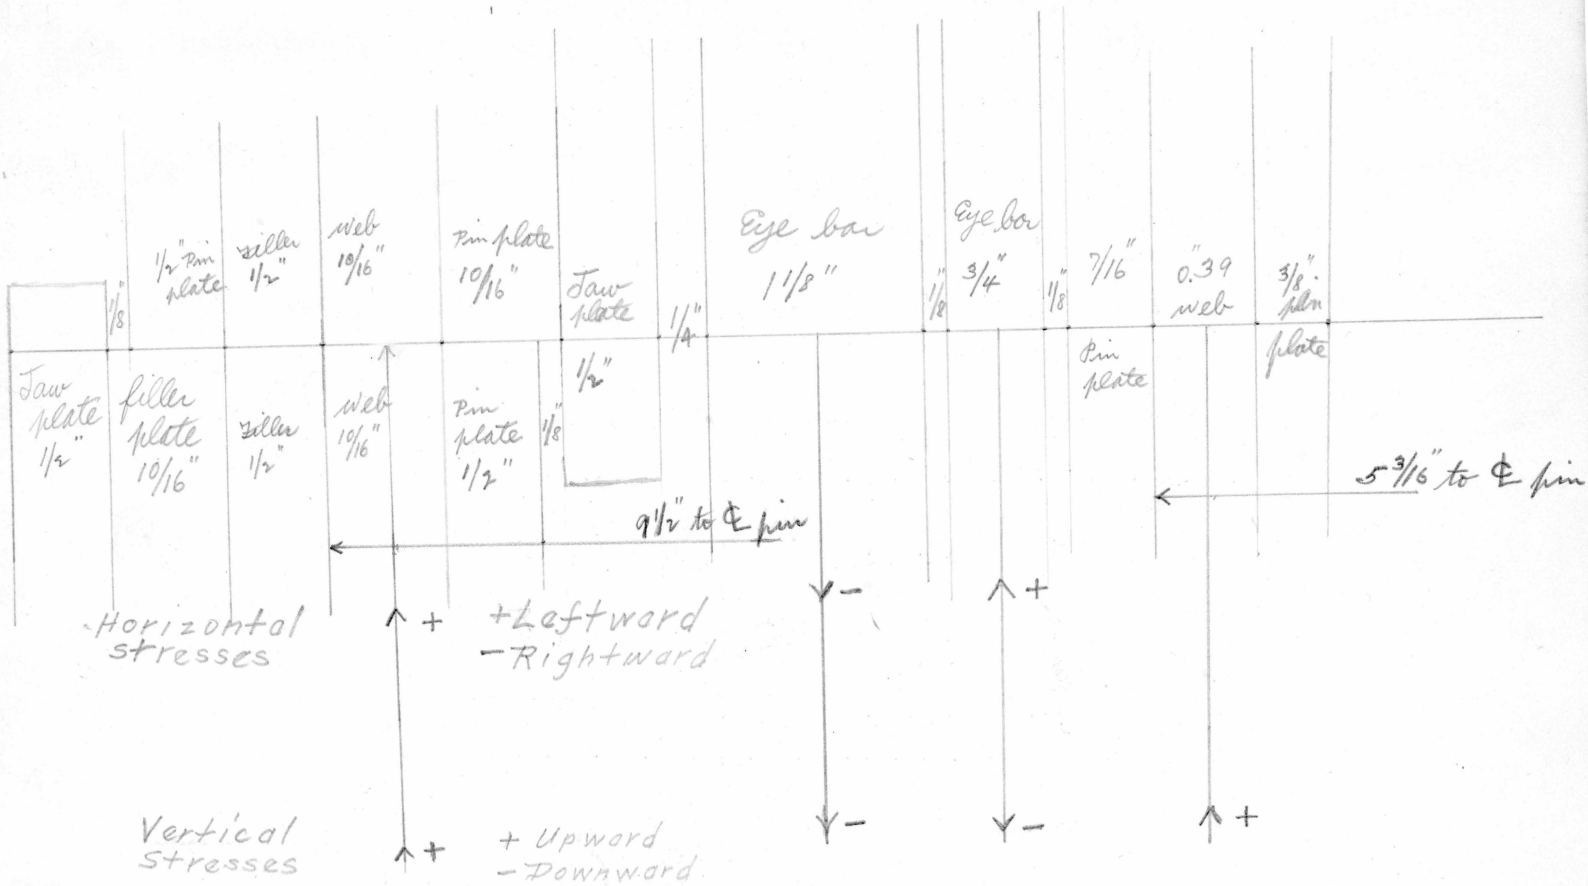 1/8"
1/2" Pin
plate
Filler
1/2"
Web
10/16"
Pin plate
10/16"
Jaw
plate
1/4"
Eye bar
1 1/8"
1/8"
Eye bar
3/4"
1/8"
7/16"
0.39"
web
3/8"
pin
plate
Jaw
plate
1/2"
filler
plate
10/16"
Filler
1/2"
Web
10/16"
Pin
plate
1/2"
1/8"
1/2"
Pin
plate
9 1/2" to ℄ pin
5 3/16" to ℄ pin
Horizontal
stresses
+
+ Leftward
- Rightward
-
+
Vertical
stresses
+
+ Upward
- Downward
-
-
+